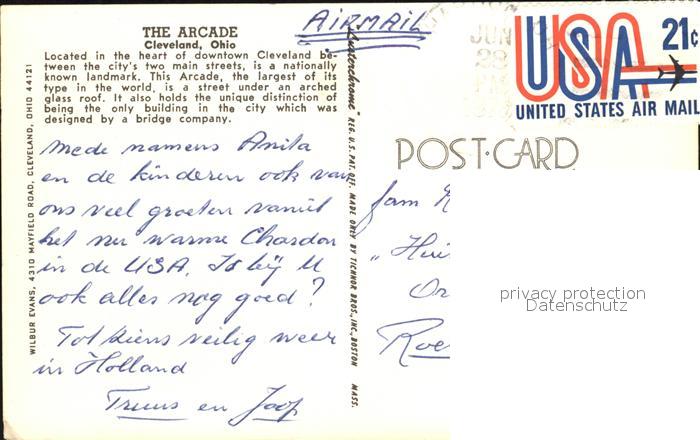 THE ARCADE
Cleveland, Ohio
Located in the heart of downtown Cleveland be-
tween the city's two main streets, is a nationally
known landmark. This Arcade, the largest of its
type in the world, is a street under an arched
glass roof. It also holds the unique distinction of
being the only building in the city which was
designed by a bridge company.
WILBUR EVANS, 4310 MAYFIELD ROAD, CLEVELAND, OHIO 44121
Mede namens Anita
en de kinderen ook van
ons veel groeten vanuit
het nu warme Chardon
in de USA. Is bij U
ook alles nog goed?
Tot ziens veilig weer
in Holland
Truus en Joop
AIRMAIL
"Lusterchrome" REG. U.S. PAT. OFF. MADE ONLY BY TICHNOR BROS., INC., BOSTON MASS.
JUN
28
PM
USA 21c
UNITED STATES AIR MAIL
POST CARD
fam
"Hui
Or
Roe
privacy protection
Datenschutz